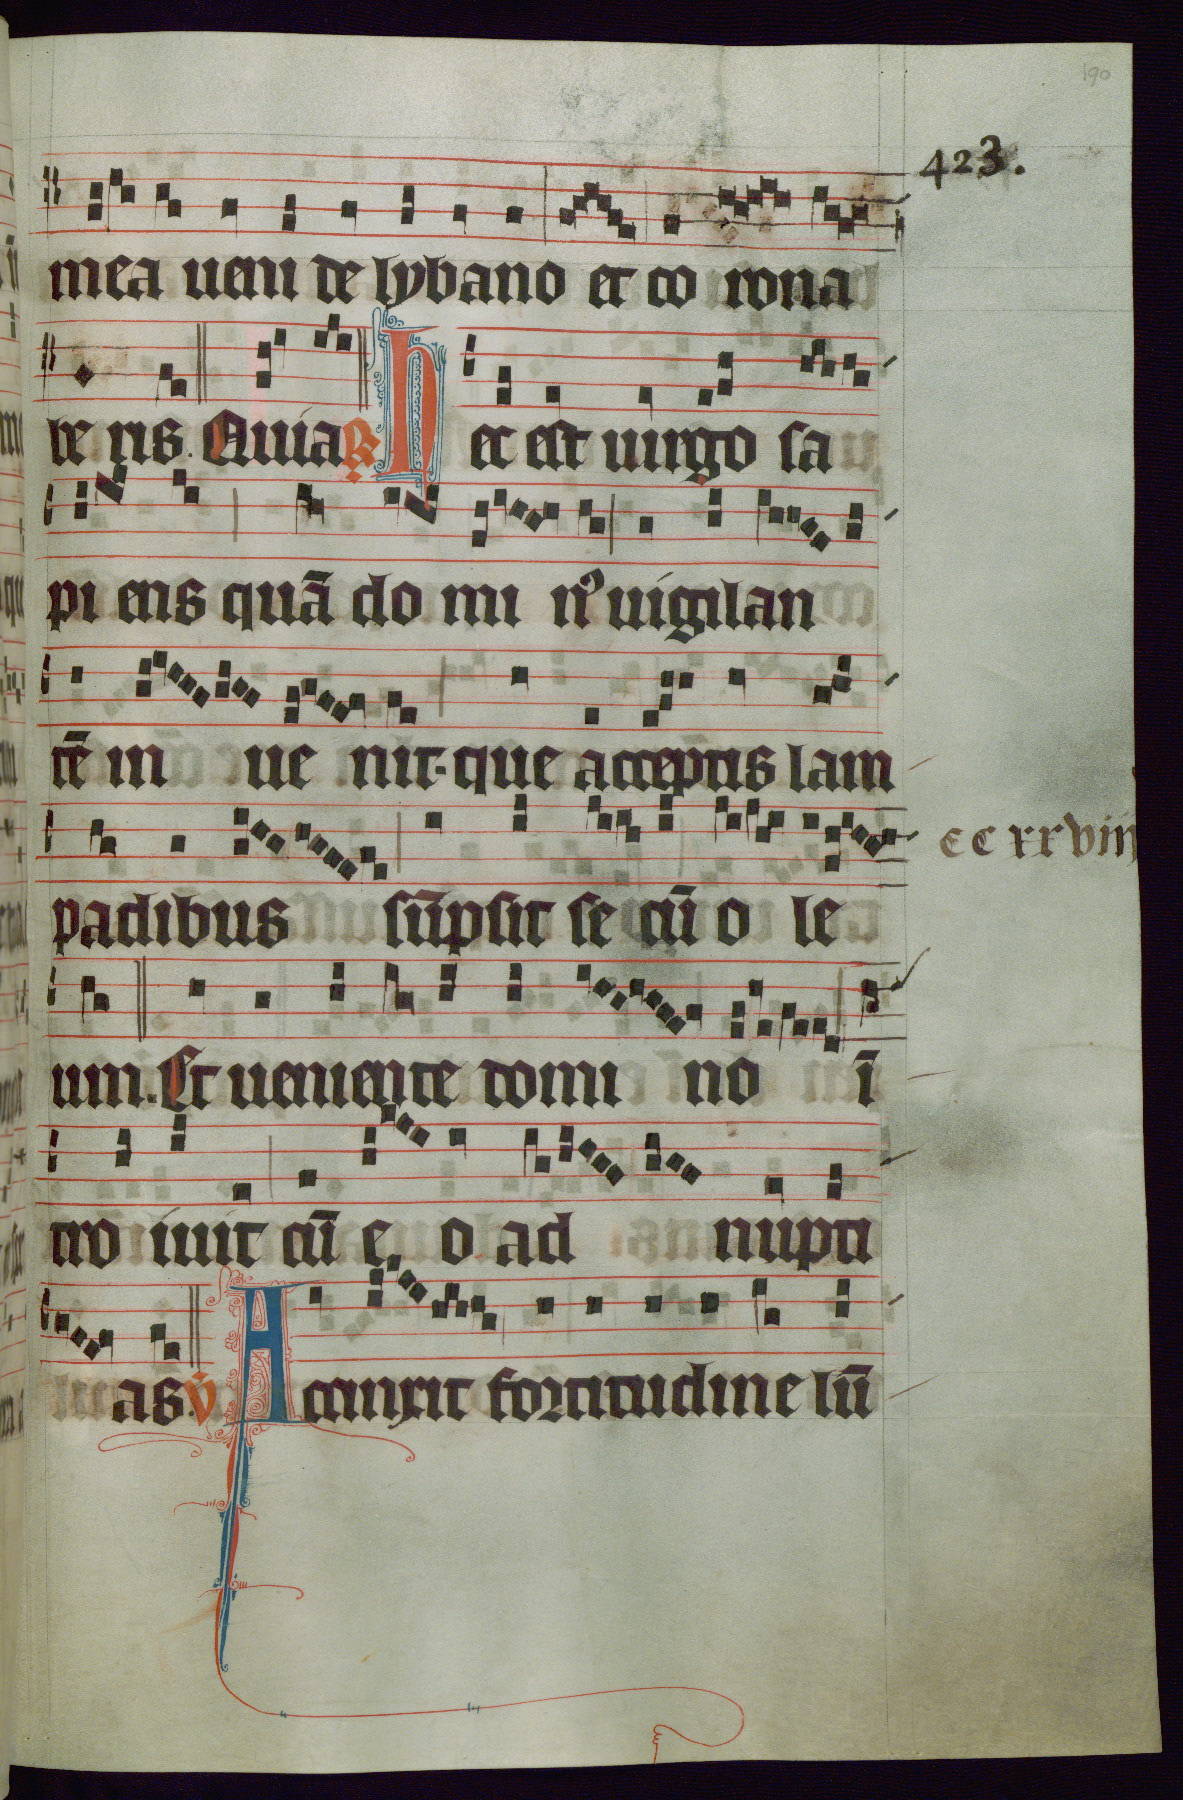 190
423.
mea ueni de lybano et co rona
be ris. Quia R̷ H ec est uirgo sa
pi ens quā do mi nꝰ uigilan
tē in ue nit· que acceptis lam
ccxxviii
padibus sūpsit se cū o le
um. Et ueniente domi no ī
tro iuit cū e o ad nupti
as. V̷ A ccinxit fortitudine lū